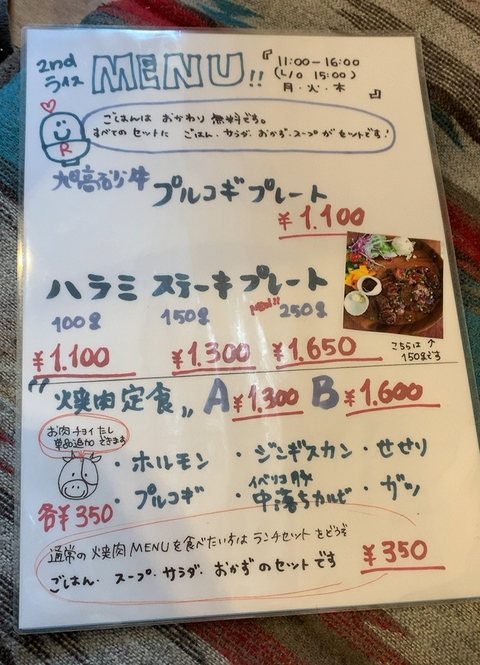 2nd
ライス
MENU!!
『11:00-16:00
(L/O 15:00)
月・火・木』
ごはんは おかわり 無料です。
すべてのセットに ごはん・サラダ・おかず・スープ がセットです!
R
旭高砂牛
プルコギプレート
¥1.100
ハラミ ステーキプレート
100g 150g New!! 250g
¥1.100 ¥1.300 ¥1.650
こちらは↑
150gです
"焼肉定食" A ¥1.300 B ¥1.600
お肉チョイたし
単品追加できます
・ホルモン ・ジンギスカン ・せせり
・プルコギ ・イベリコ豚 中落ちカルビ ・ガツ
各¥350
通常の焼肉MENUを食べたい方は ランチセットをどうぞ
ごはん、スープ・サラダ・おかずのセットです
¥350